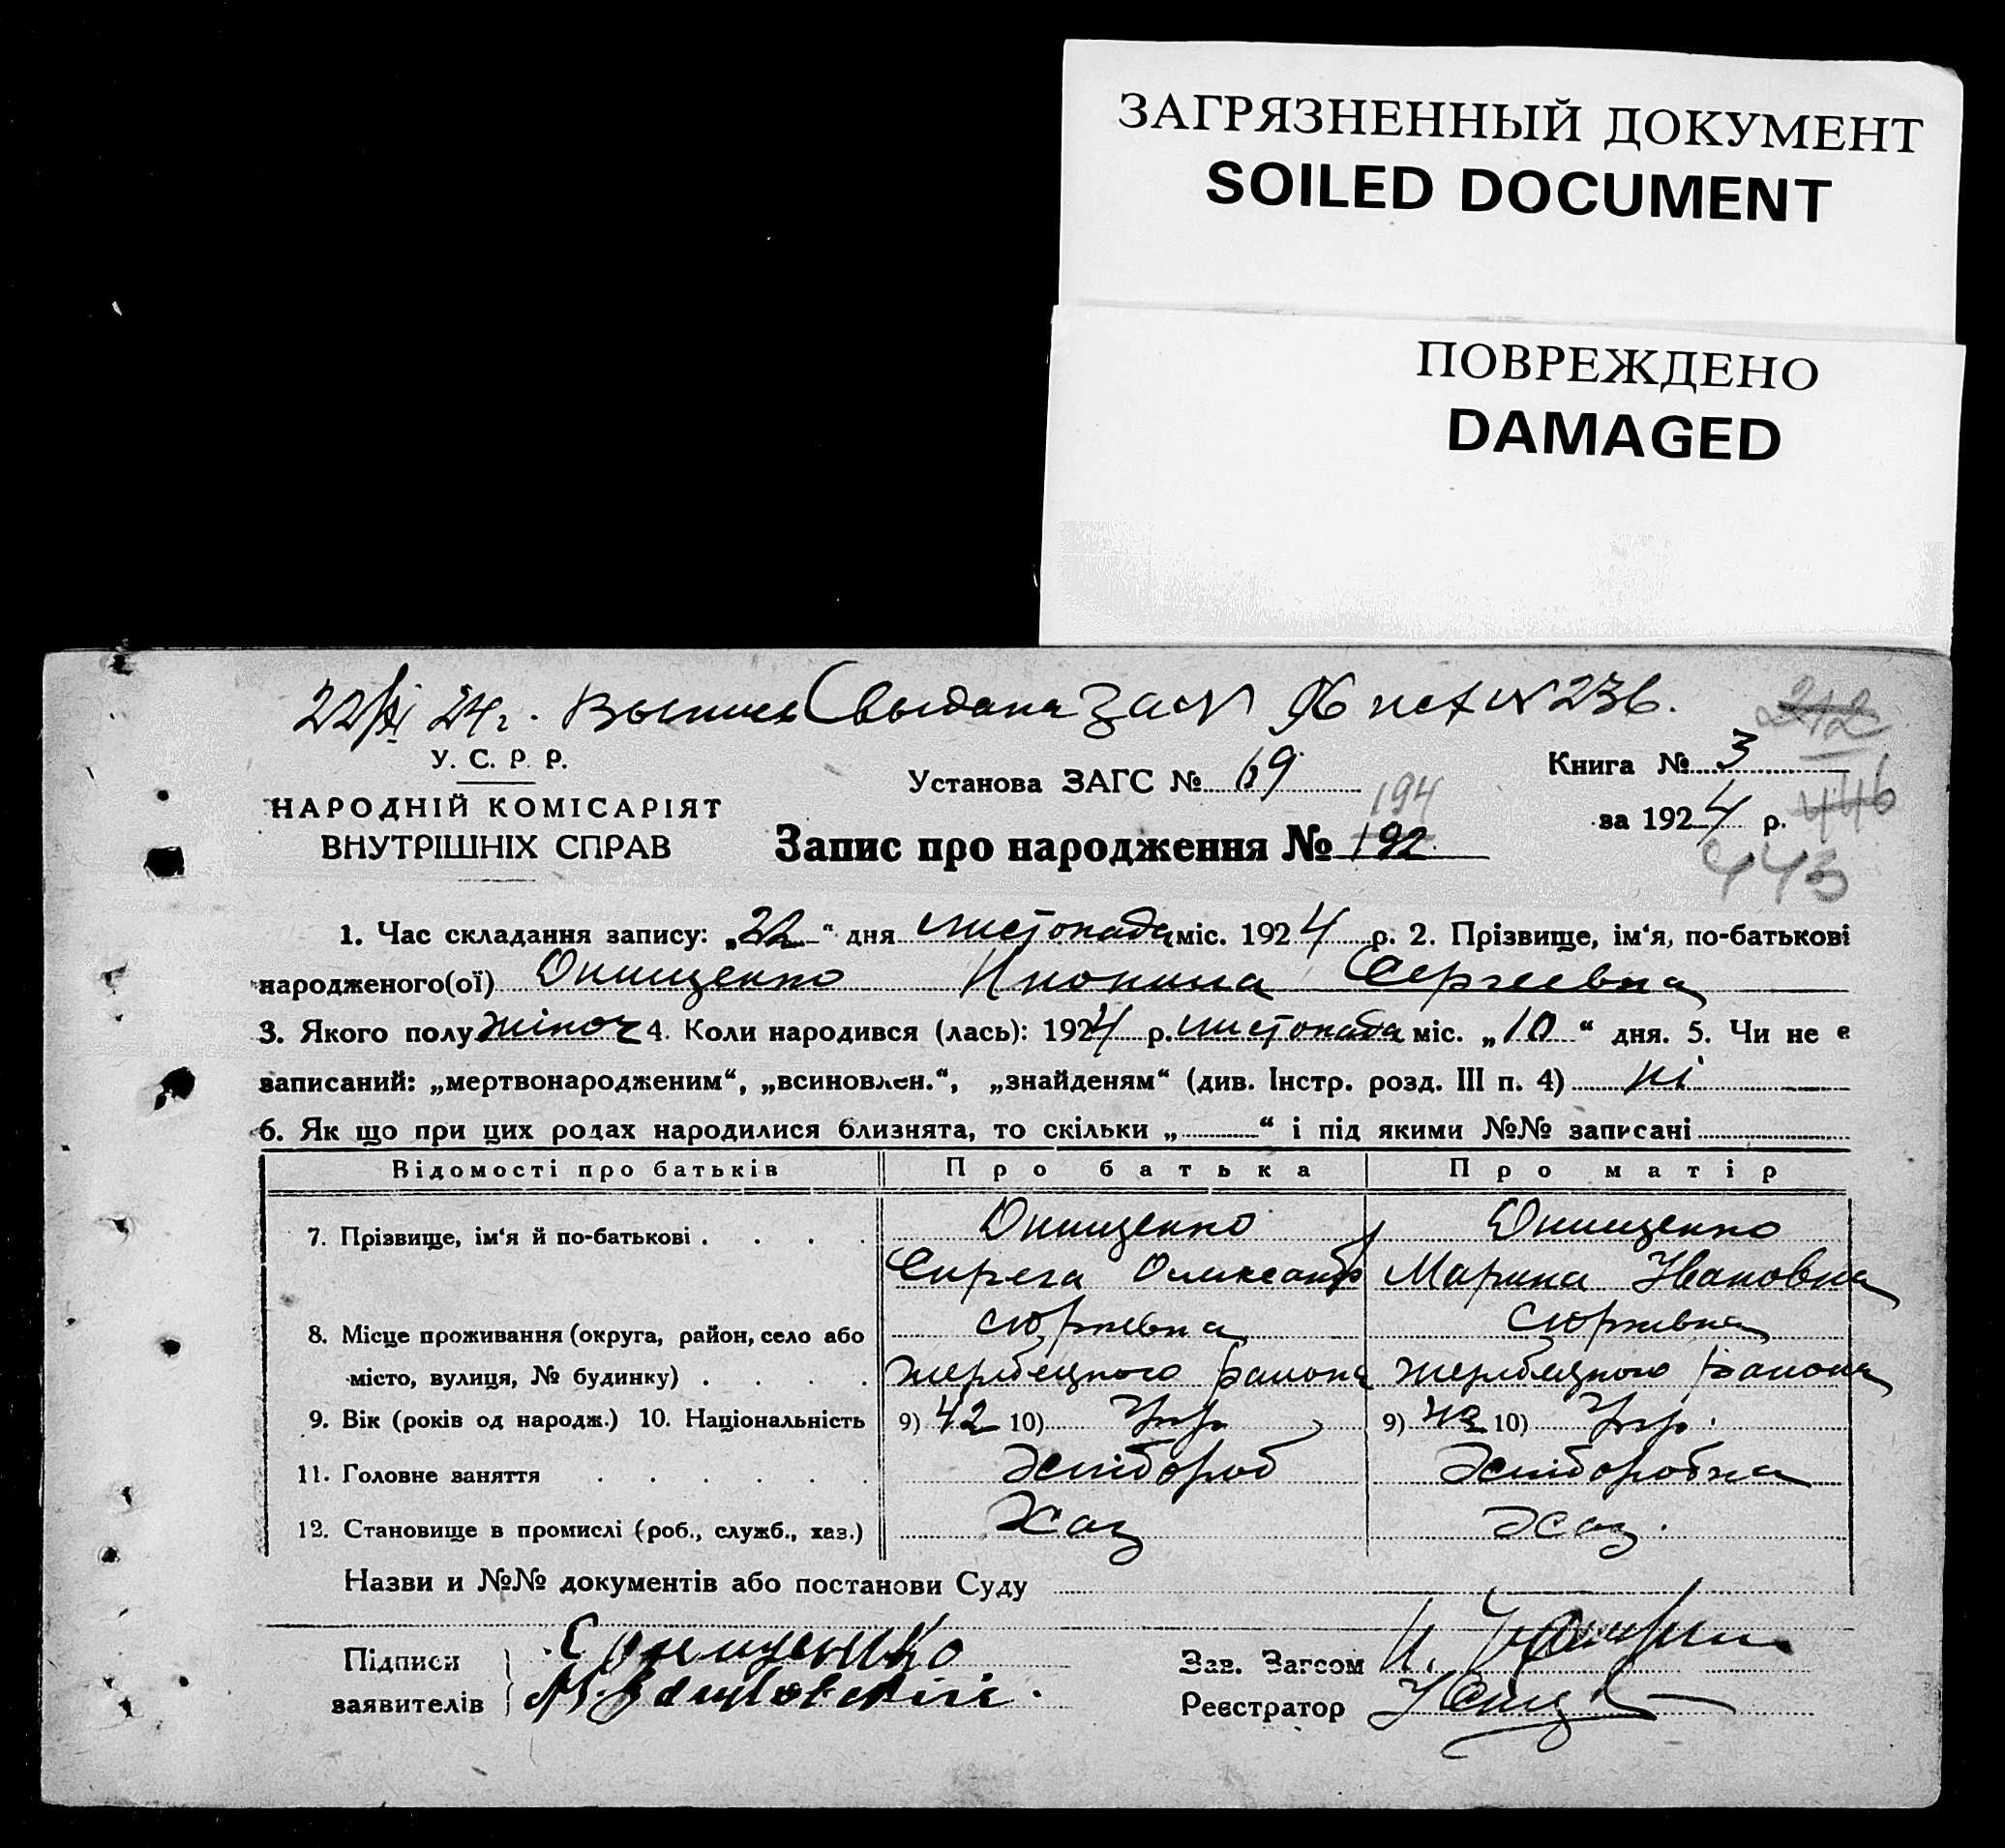 ЗАГРЯЗНЕННЫЙ ДОКУМЕНТ
SOILED DOCUMENT
ПОВРЕЖДЕНО
DAMAGED
22/XI 24 г. Выпись выдана за № 96 № 236.
212
У. С. Р. Р.
НАРОДНІЙ КОМІСАРІЯТ
ВНУТРІШНІХ СПРАВ
Установа ЗАГС № 69
Книга № 3
за 1924 р.
446
443
194
Запис про народження № 192
1. Час складання запису: „22“ дня листопада міс. 1924 р. 2. Прізвище, ім‘я, по-батькові
народженого(ої) Онищенко Сергеевна
3. Якого полу жіноч 4. Коли народився (лась): 1924 р. листопада міс. „10“ дня. 5. Чи не є
записаний: „мертвонародженим“, „всиновлен.“, „знайденям“ (див. Інстр. розд. III п. 4) ні
6. Як що при цих родах народилися близнята, то скільки „ “ і під якими №№ записані
Відомості про батьків Про батька Про матір
7. Прізвище, ім‘я й по-батькові . . . . Онищенко Онищенко
Олександр Марина Ивановна
8. Місце проживання (округа, район, село або
місто, вулиця, № будинку) . . . . района района
9. Вік (років од народж.) 10. Національність 9) 42 10) Укр 9) 43 10) Укр.
11. Головне заняття . . . . . . Хлібороб Хліборобка
12. Становище в промислі (роб., служб., хаз.) Хаз Хаз.
Назви и №№ документів або постанови Суду
Підписи
заявителів
С Онищенко
Зав. Загсом И.
Реєстратор